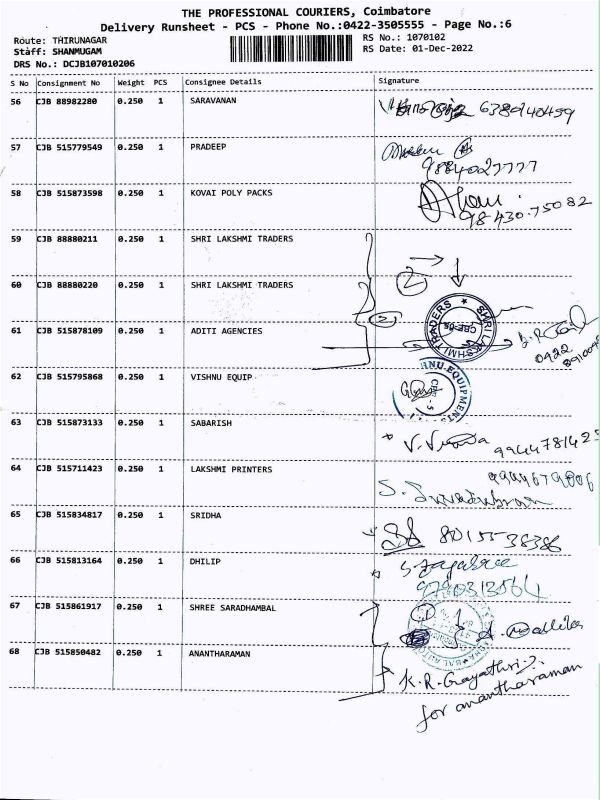 THE PROFESSIONAL COURIERS, Coimbatore
Delivery Runsheet - PCS - Phone No.:0422-3505555 - Page No.:6
Route: THIRUNAGAR
Staff: SHANMUGAM
DRS No.: DCJB107010206
RS No.: 1070102
RS Date: 01-Dec-2022
S No Consignment No Weight PCS Consignee Details Signature
56 CJB 88982280 0.250 1 SARAVANAN
57 CJB 515779549 0.250 1 PRADEEP
9884027777
58 CJB 515873598 0.250 1 KOVAI POLY PACKS
98430.75082
59 CJB 88880211 0.250 1 SHRI LAKSHMI TRADERS
2
60 CJB 88880220 0.250 1 SHRI LAKSHMI TRADERS
2
SHRI LAKSHMI TRADERS
61 CJB 515878109 0.250 1 ADITI AGENCIES
0422
62 CJB 515795868 0.250 1 VISHNU EQUIP
63 CJB 515873133 0.250 1 SABARISH
64 CJB 515711423 0.250 1 LAKSHMI PRINTERS
65 CJB 515834817 0.250 1 SRIDHA
8015538386
66 CJB 515813164 0.250 1 DHILIP
9790313564
67 CJB 515861917 0.250 1 SHREE SARADHAMBAL
1
68 CJB 515850482 0.250 1 ANANTHARAMAN
K.R.Gayathri
for anantharaman